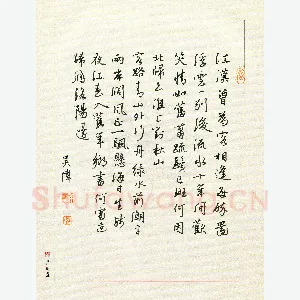 江漢曾為客相逢每醉還
浮雲一別後流水十年間歡
笑情如舊蕭疏鬢已斑何因
北歸去淮上對秋山
客路青山外行舟綠水前潮平
兩岸闊風正一帆懸海日生殘
夜江春入舊年鄉書何處達
歸雁洛陽邊